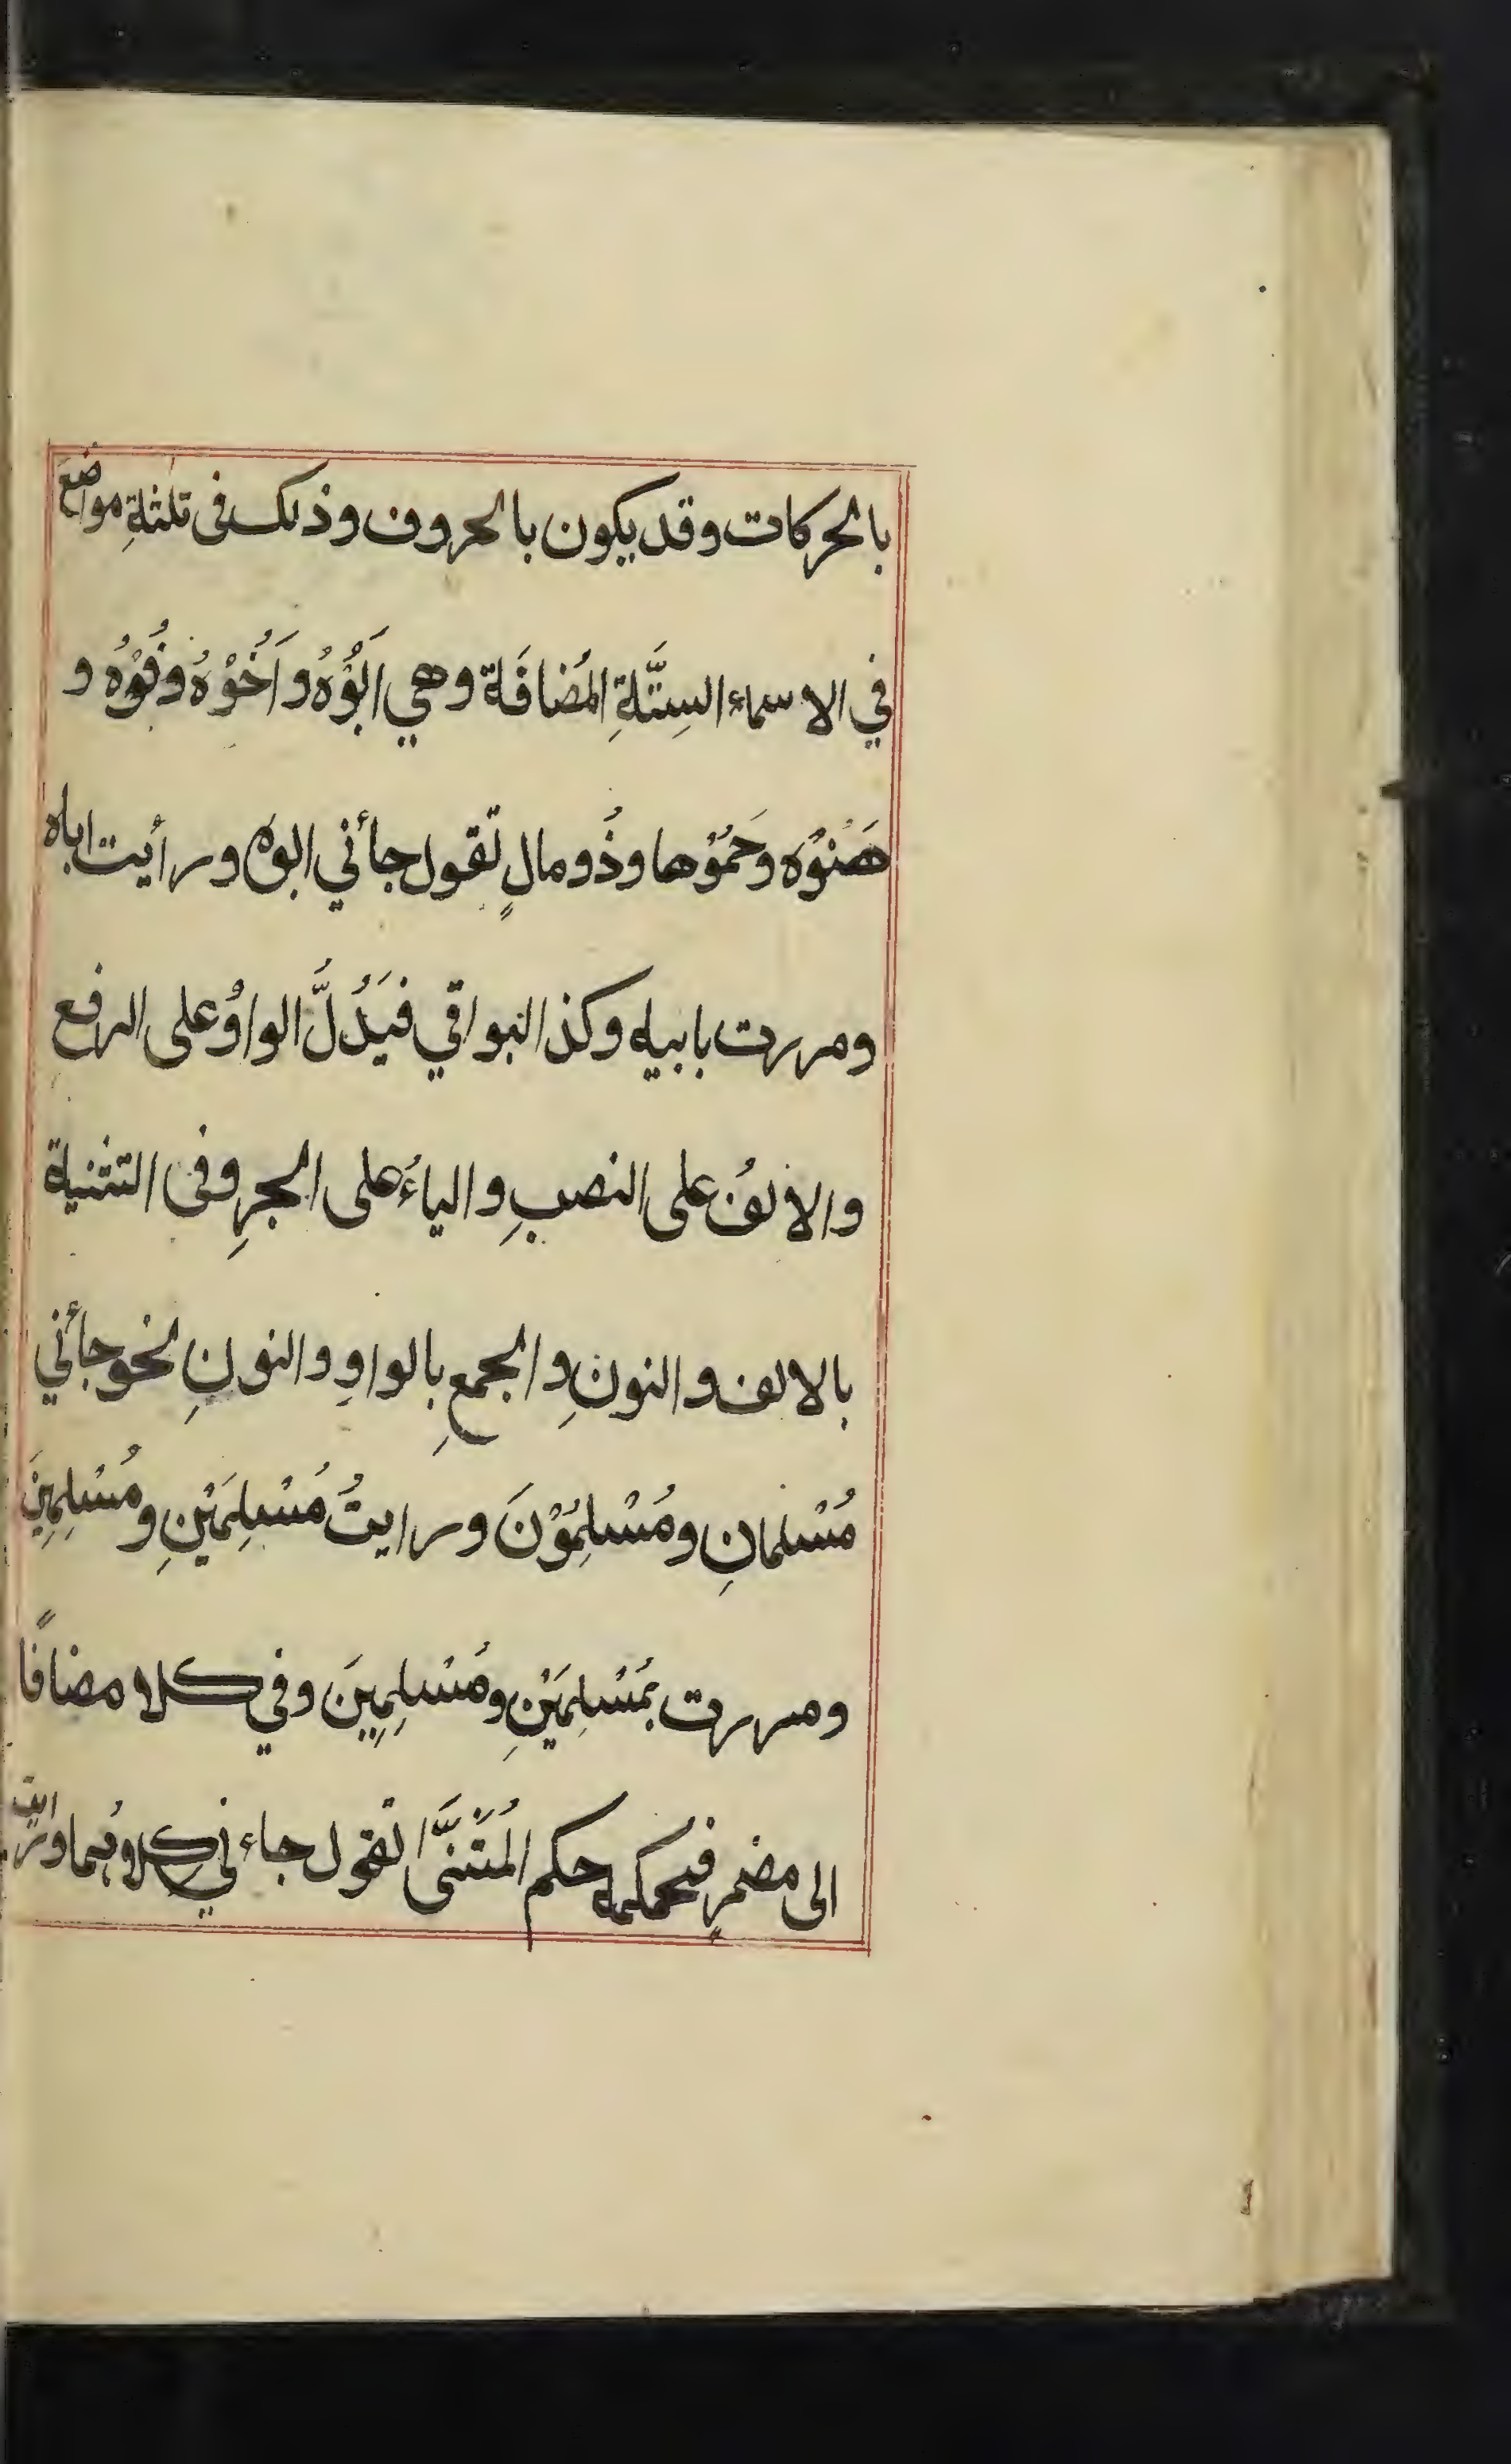 بالحركات وقد يكون بالحروف وذلك فى ثلثةِ مواضع
في الاسماء السِتَّةِ المُضافَة وهي اَبُوْهُ واَخُوْهُ وفُوْهُ و
هَنُوْه وحَمُوْها وذُو مالٍ تقول جأني ابوه ورأيت اباه
ومررت بابيه وكذا البواقي فيَدُلَّ الواوُ على الرفع
والالفُ على النصبِ والياءُ على الجرِ وفى التثنية
بالالف والنونِ والجمعِ بِالواوِ والنونِ نحو جأني
مُسْلمانِ ومُسْلِمُوْنَ ورايتُ مُسْلِمَيْنِ ومُسْلِمِينَ
ومررت بمُسْلِمَيْنِ ومُسْلِمِيِنَ وفي كلا مضافًا
الى مضمرٍ فحكمه حكم المُثَنَّى تقول جاءني كِلاهُما ورايت